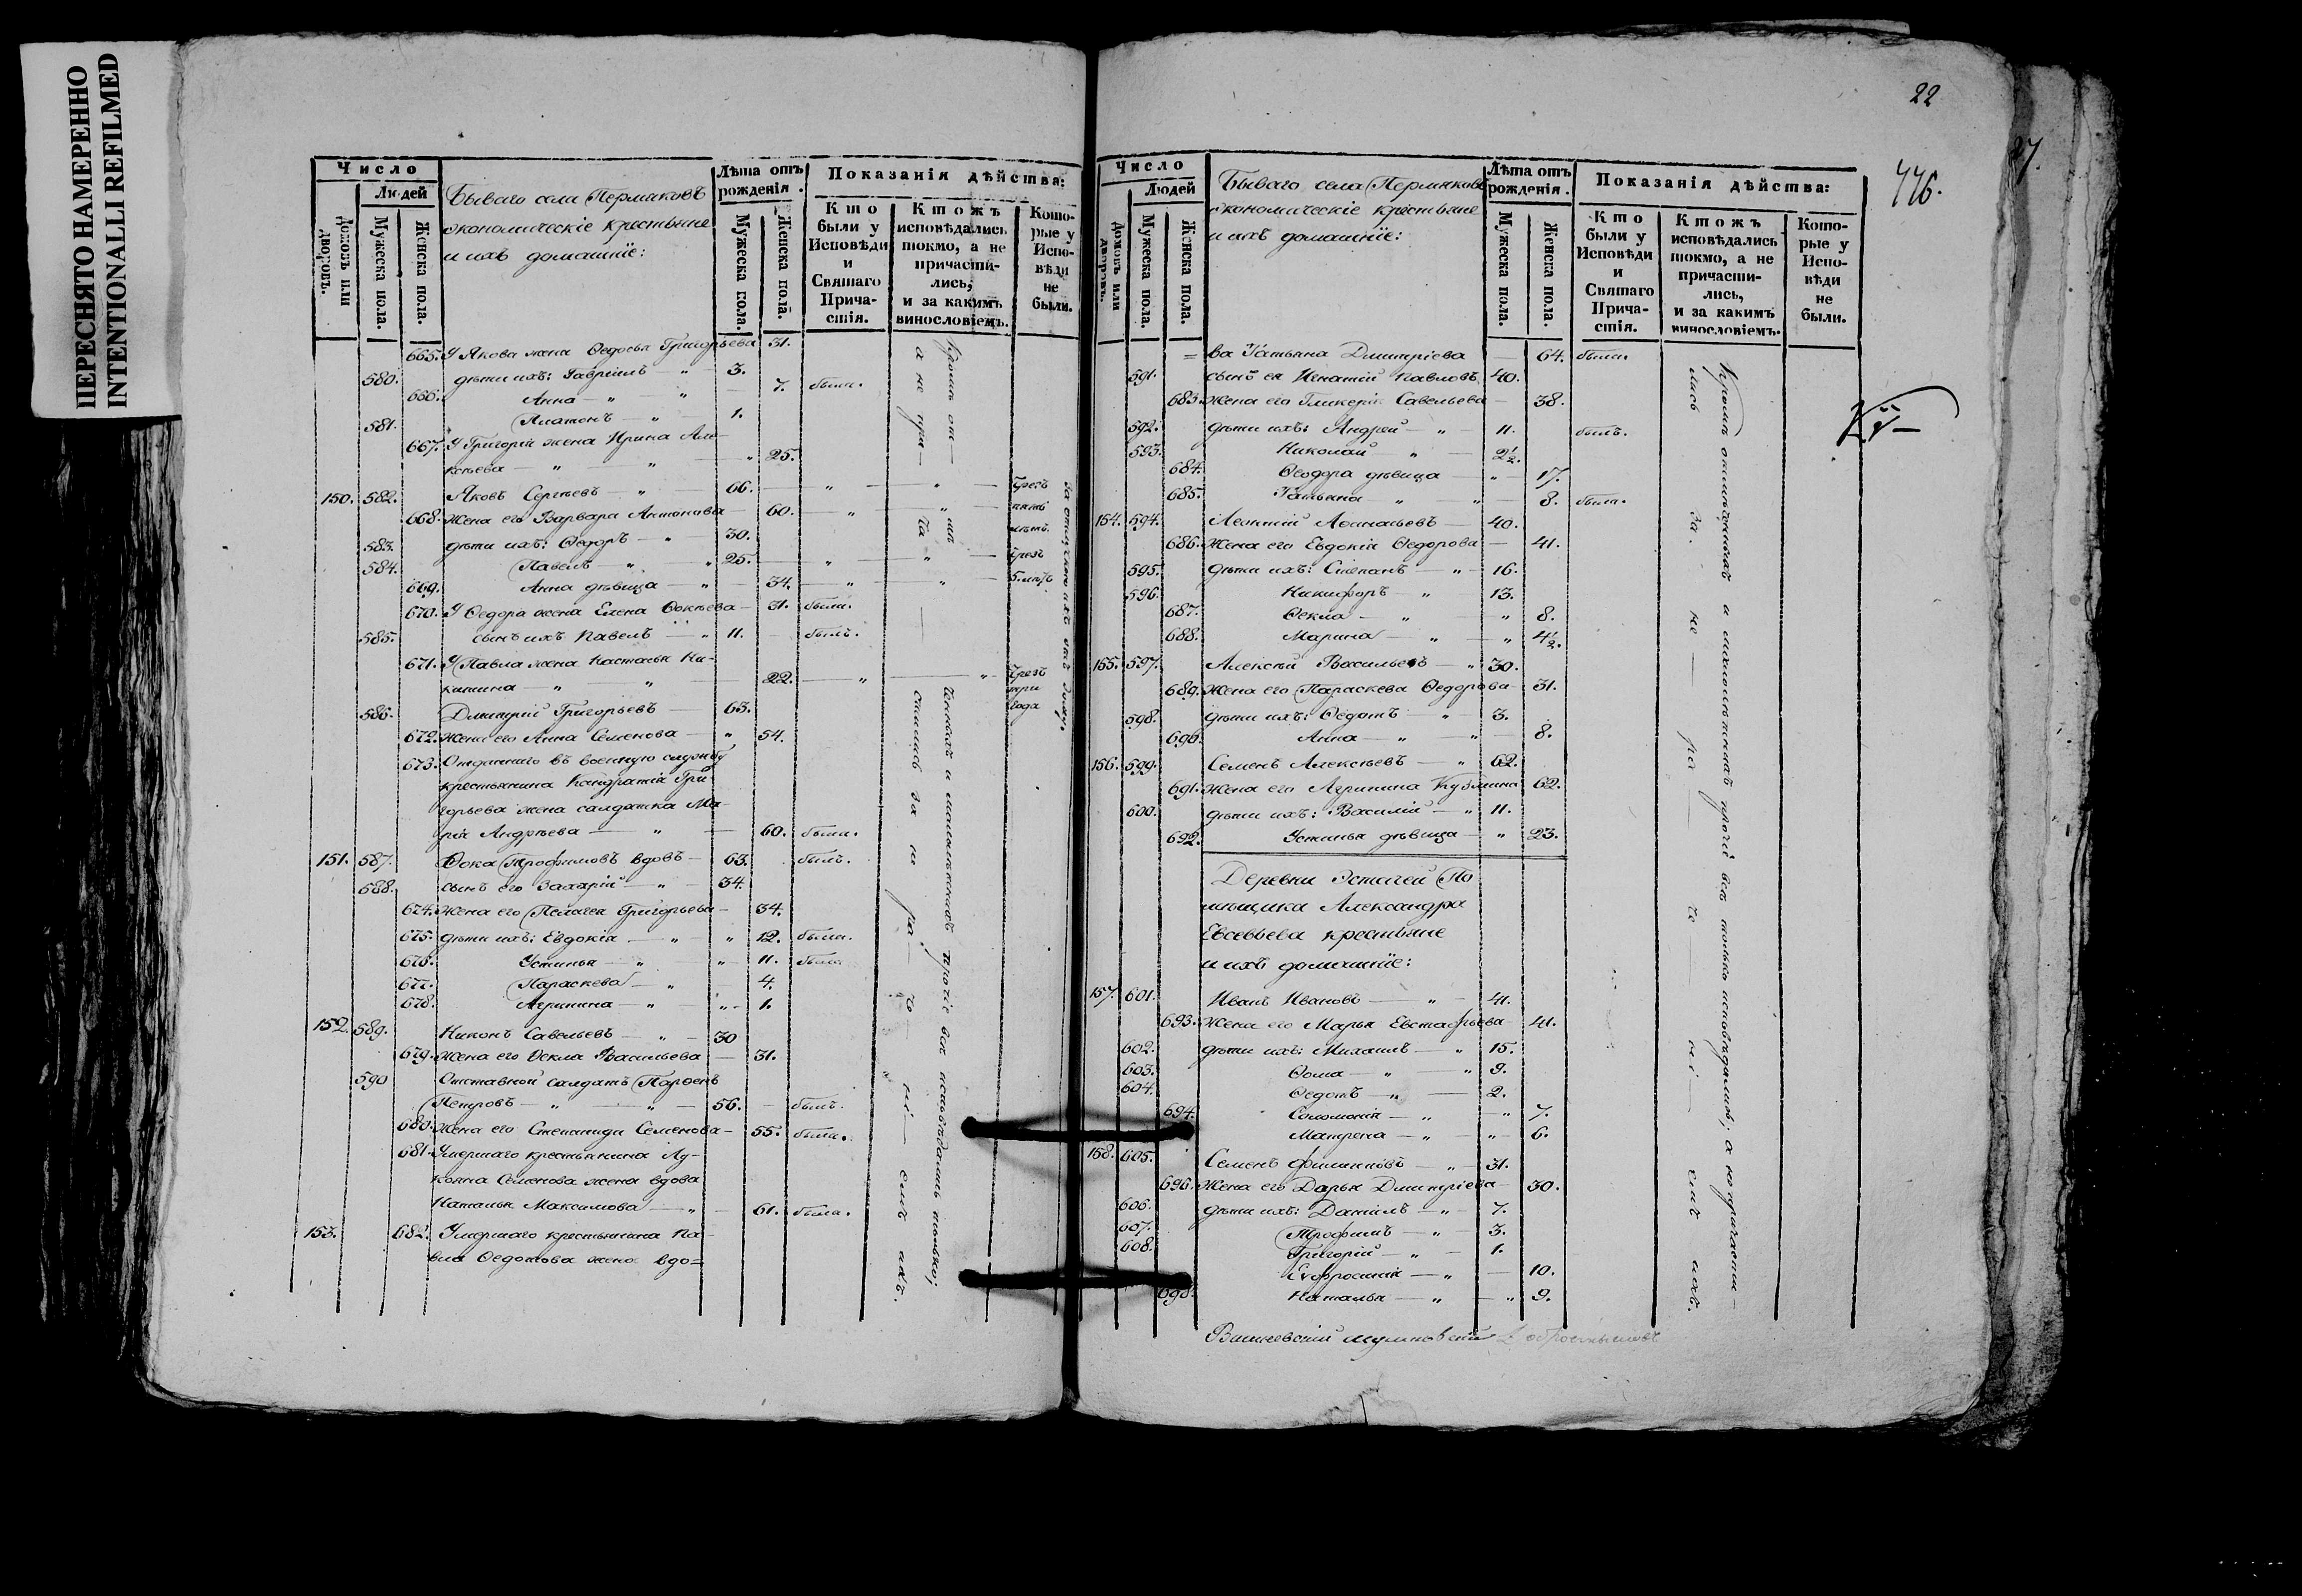 ПЕРЕСНЯТО НАМЕРЕННО
INTENTIONALLI REFILMED
Число
Людей
Домовъ или дворовъ.
Мужеска пола.
Женска пола.
Бываго села Пермяковъ
экономическіе крестьяне
и ихъ домашніе:
Лѣта отъ рожденія.
Мужеска пола.
Женска пола.
Показанія дѣйства:
Кто были у Исповѣди и Святаго Причастія.
Ктожъ исповѣдались токмо, а не причастились, и за какимъ винословіемъ.
Которые у Исповѣди не были.
665. У Якова жена Ѳедосья Григорьева 31.
580. дѣти ихъ: Гавріилъ — „ — 3.
666. Анна — „ „ 7. была.
581. Платонъ — „ 1.
667. У Григорія жена Ирина Але-
ксѣева — „ — „ — „ 25.
150. 582. Яковъ Сергѣевъ — „ 66. — „ — „ — чрезъ
668. Жена его Варвара Антонова — 60. — „ „ пять
583. дѣти ихъ: Ѳедоръ — „ — 30. лѣтъ.
584. Павелъ — „ „ 25. — „ — „ — чрезъ
669. Анна дѣвица „ — 34. — „ — „ — 5. лѣтъ
670. У Ѳедора жена Елена Ѳокѣева — 31. была.
585. сынъ ихъ Павелъ — „ 11. — былъ.
671. У Павла жена Настасья Ни-
китина — „ „ — 22. — „ — „ чрезъ три года
586. Дмитрій Григорьевъ — 63.
672. Жена его Анна Семенова — „ 54.
673. Отданнаго въ военную службу
крестьянина Кондратія Гри-
горьева жена салдатка Ма-
рія Андрѣева — „ — 60. была.
151. 587. Ѳока Трофимовъ вдовъ — 63. былъ.
588. сынъ его Захарій — „ — 34.
674. Жена его Пелагея Григорьева — 34.
675. дѣти ихъ: Евдокія — „ — „ 12. была.
676. Устинья — „ „ — 11. была
677. Параскева — „ — 4.
678. Агрипина — „ „ — 1.
152. 589. Никонъ Савельевъ — „ — 30
679. Жена его Ѳекла Васильева — 31.
590 Отставной салдатъ Парѳенъ
Петровъ — „ — „ — 56. — былъ.
680. Жена его Степанида Семенова — 55. была.
681. Умершаго крестьянина Лу-
кояна Семенова жена вдова
Наталья Максимова — „ — 61. была.
153. 682. Умершаго крестьянина Па-
вла Ѳедотова жена вдо=
за отлучкою ихъ изъ дому.
22
27.
776.
Число
Людей
Домовъ или дворовъ.
Мужеска пола.
Женска пола.
Бываго села Пермяковъ
экономическіе крестьяне
и ихъ домашніе:
Лѣта отъ рожденія.
Мужеска пола.
Женска пола.
Показанія дѣйства:
Кто были у Исповѣди и Святаго Причастія.
Ктожъ исповѣдались токмо, а не причастились, и за какимъ винословіемъ.
Которые у Исповѣди не были.
= ва Татьяна Дмитріева — 64. была.
591. сынъ ея Игнатій Павловъ 40.
683. Жена его Гликерія Савельева — 38.
592. дѣти ихъ: Андрей — „ — 11. былъ.
593. Николай „ — 2½.
684. Ѳеодора дѣвица — „ — 17.
685. Татьяна „ „ — 8. была.
154. 594. Леонтій Аѳанасьевъ — 40.
686. Жена его Евдокія Ѳедорова — 41.
595. дѣти ихъ: Степанъ — „ — 16.
596. Никифоръ — „ 13.
687. Ѳекла — „ „ 8.
688. Марина — „ — „ 4½.
155. 597. Алексѣй Васильевъ — „ 30.
689. Жена его Параскева Ѳедорова — 31.
598. дѣти ихъ: Ѳедотъ — „ — 3.
690. Анна — „ „ — 8.
156. 599. Семенъ Алексѣевъ — „ 62.
691. Жена его Агрипина Кузмина 62.
600. дѣти ихъ: Василій — „ 11.
692. Устинья дѣвица — „ 23.
Деревни Эсталей По
мѣщика Александра
Евсевьева крестьяне
и ихъ домашніе:
157. 601. Иванъ Ивановъ — „ — 41.
693. Жена его Марья Евстафьева — 41.
602. дѣти ихъ: Михаилъ — „ 15.
603. Ѳома — „ „ 9.
604. Ѳедотъ — „ — 2.
694. Соломонія — „ — „ 7.
Матрена — „ — „ — 6.
158. 605. Семенъ Филиповъ — „ — 31.
696. Жена его Дарья Дмитріева — 30.
606. дѣти ихъ: Даніилъ — „ — 7.
607. Трофимъ — „ — 3.
608. Григорій — „ — 1.
Евфросинія — „ — 10.
698. Наталья — „ — „ 9.